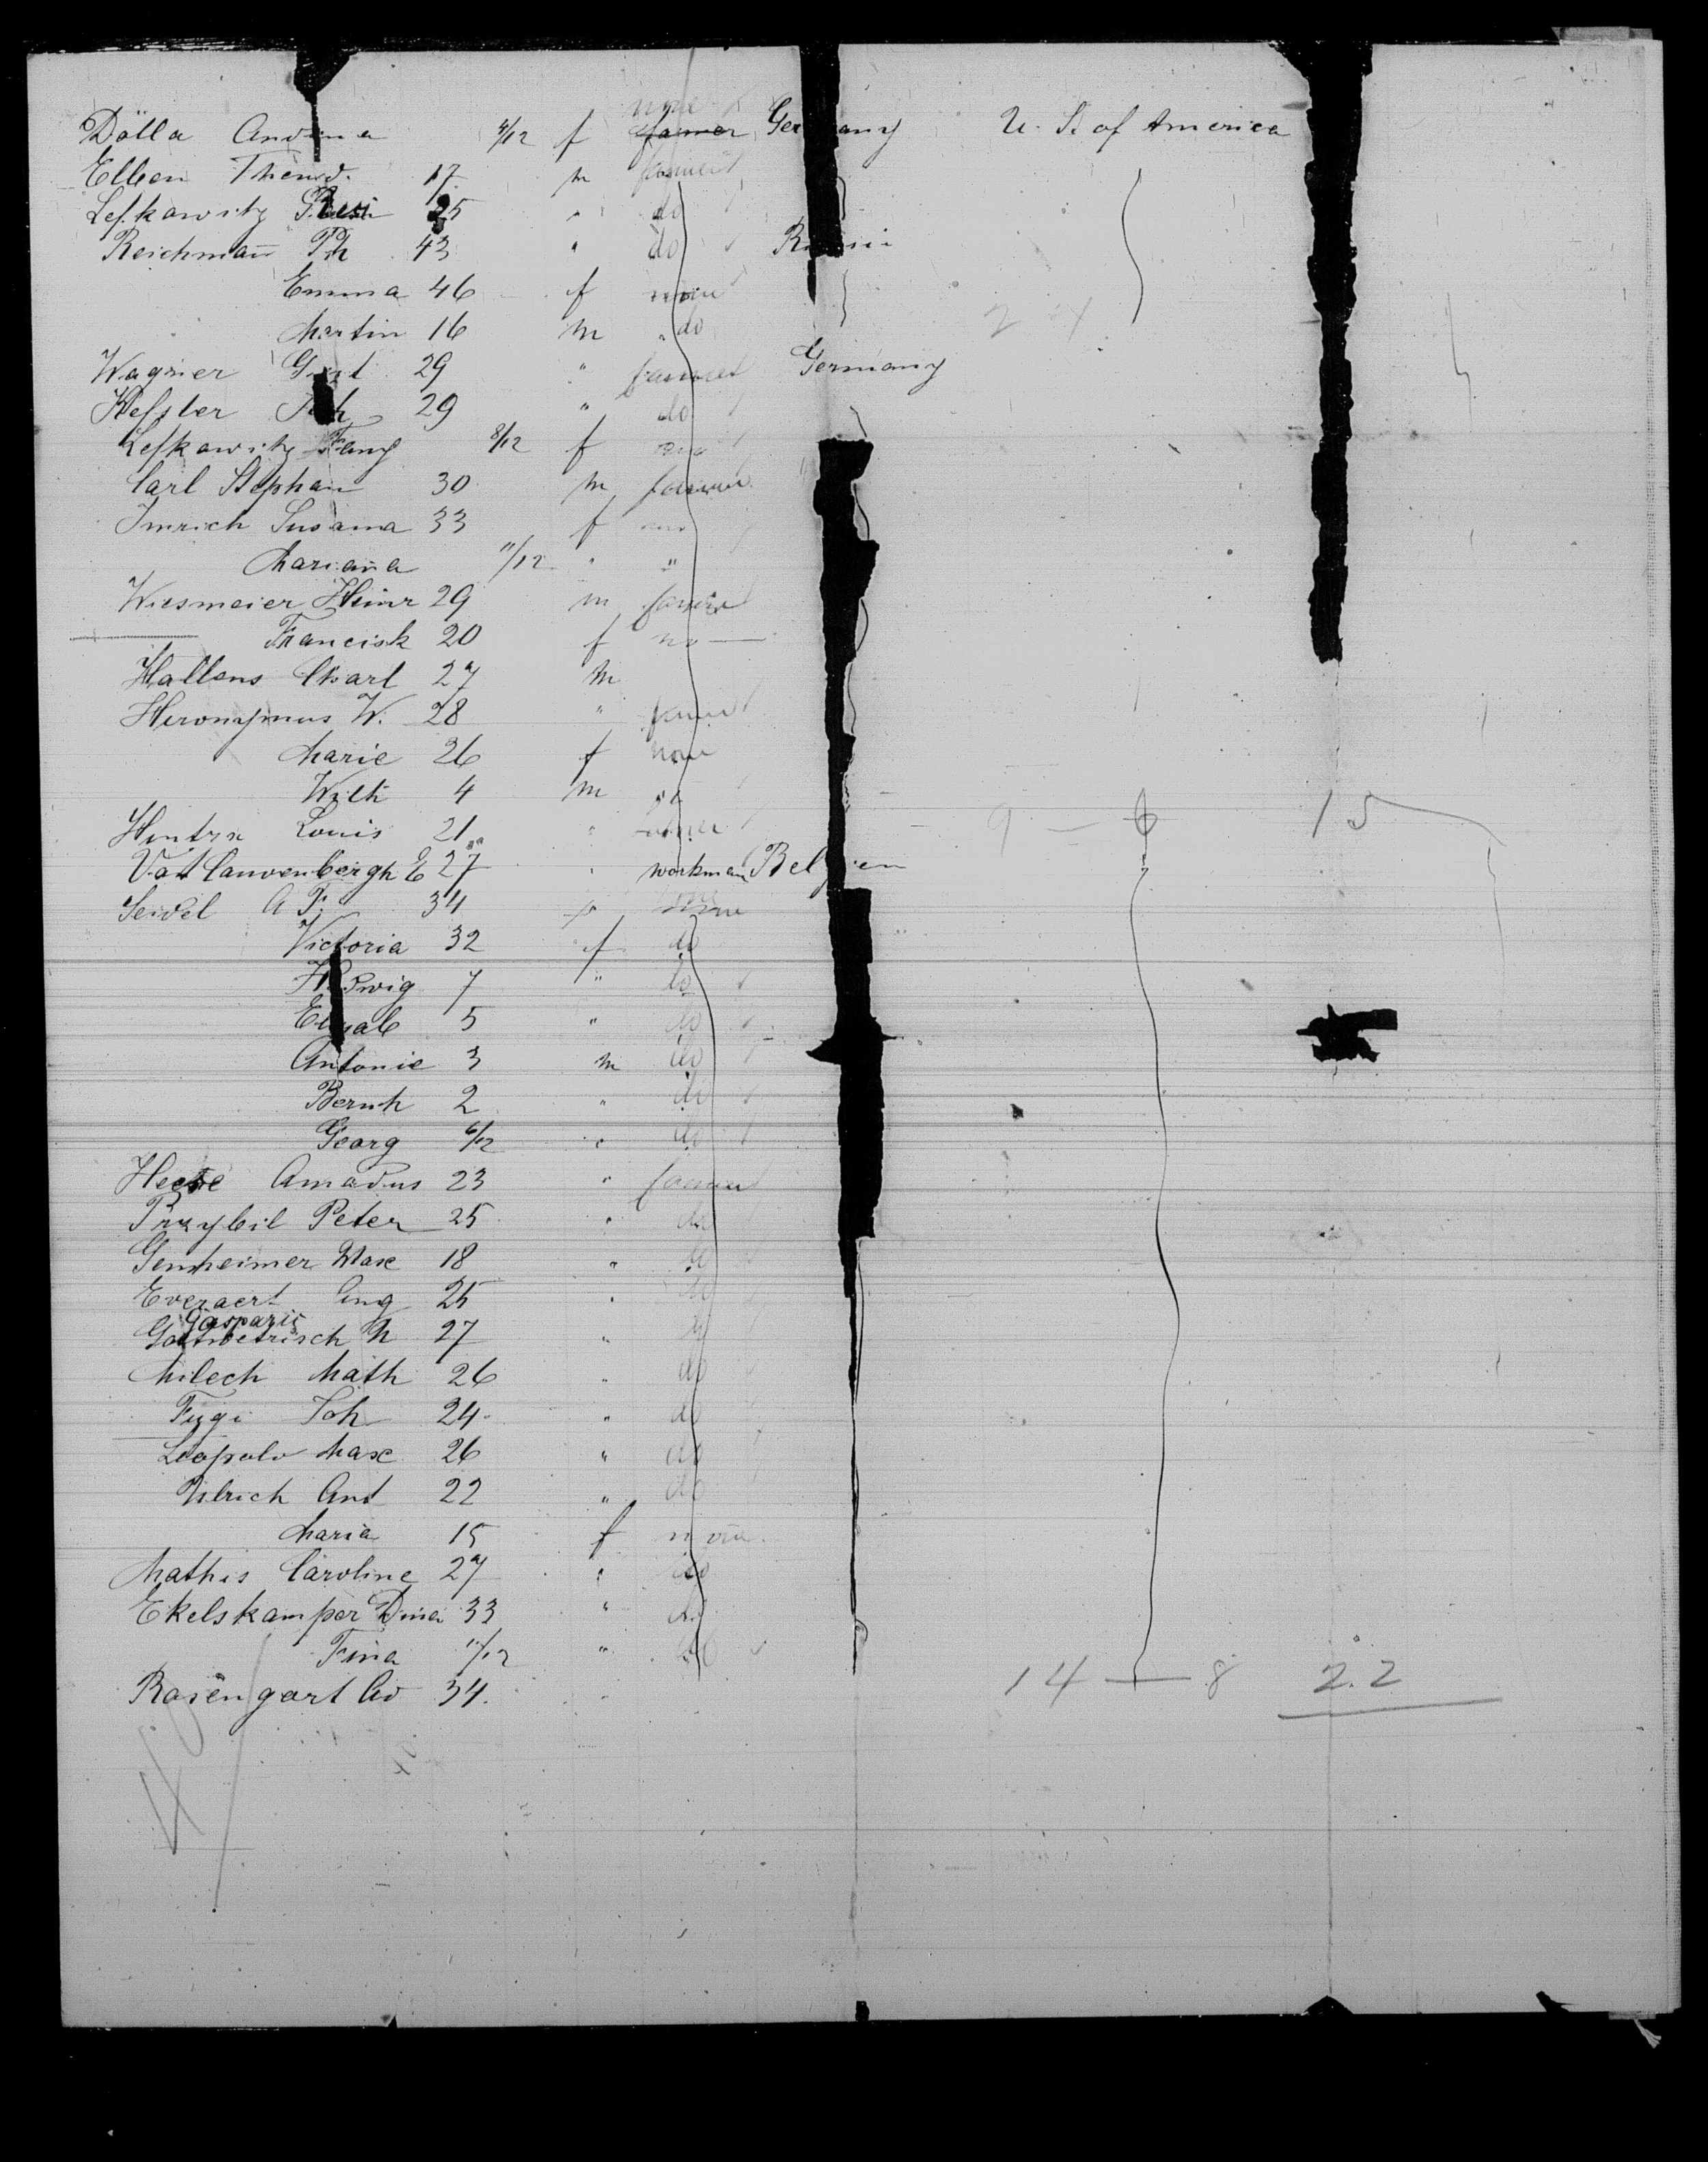 none
Dölla 4/12 f farmer Germany U. S. of America
Elben 17 m farmer
Lefkowitz Resi 25 " do
Reichman̄ Ph 43 " do
Emma 46 f none
Martin 16 m " do
Wagner Gust 29 " farmer Germany
Hefsler Joh 29 " do
Lefkowitz Fany 8/12 f
Carl Stephan 30 m farmer
Imrich Susana 33 f
Marian̄a 11/12 " "
Wiesmeier Heinr 29 m farmer
Francisk 20 f no
Hallens Charl 27 m
Hieronymus W. 28 " farmer
Marie 26 f none
Wilh 4 m
Louis 21 " 9 — 6 15
27 " workman Belgien
Seidel A F. 34 none
Victoria 32 f do
Hedwig 7 " do
Elisab 5 " do
Antonie 3 m do
Bernh 2 " do
Georg 6/12 " do
Amadus 23 " farmer
Przybil Peter 25 " do
Gensheimer Max 18 " do
Everaert Aug 25 " do
Gasparis
27 " do
Milech Math 26 " do
Joh 24 " do
Leopold Max 26 " do
Ulrich Ant 22 " do
Maria 15 f non̄e
Mathis Caroline 27 " do
Ekelskamper Dina 33 " do
Fina 11/12 " do
Rosengart Ad 34. 14 — 8 22